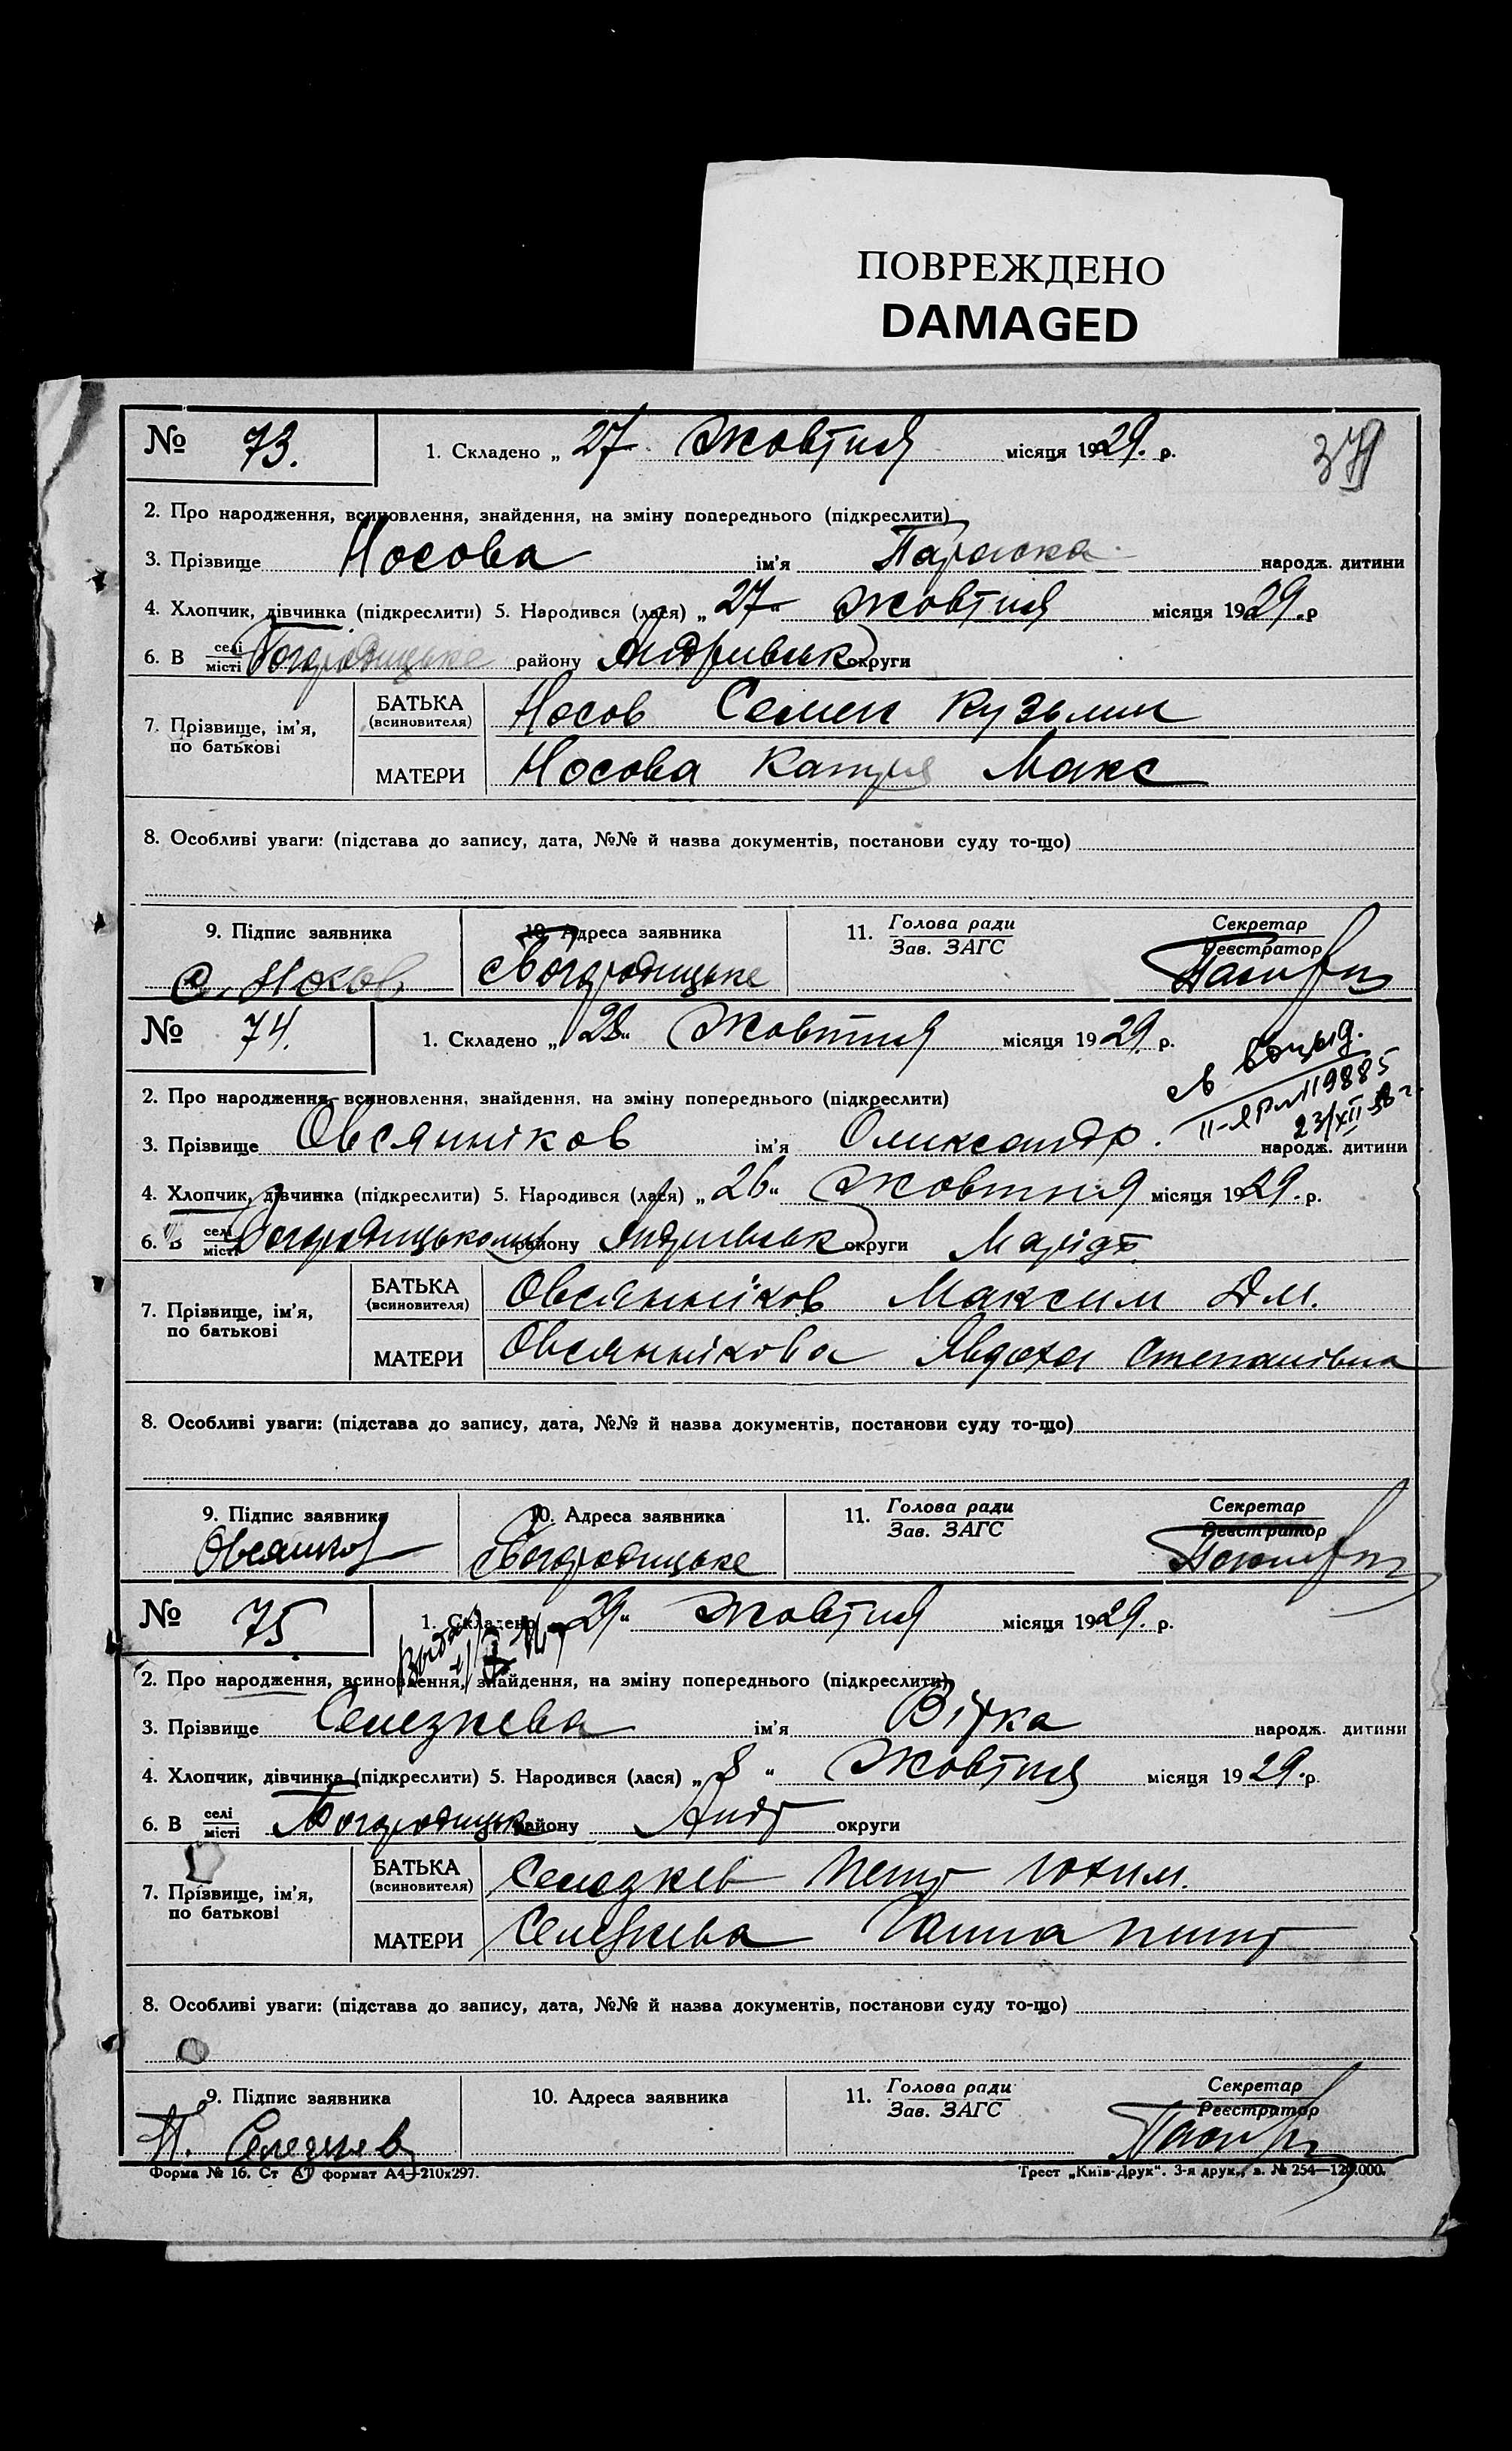 ПОВРЕЖДЕНО
DAMAGED
№ 73. 1. Складено „ 27 " жовтня місяця 1929. р.
2. Про народження, всиновлення, знайдення, на зміну попереднього (підкреслити)
3. Прізвище Носова ім'я Параска народж. дитини
4. Хлопчик, дівчинка (підкреслити) 5. Народився (лася) „ 27 " жовтня місяця 1929. р
6. В селі/місті Богородицьке району Андриевськ округи
7. Прізвище, ім'я, по батькові
БАТЬКА (всиновителя) Носов Семен Кузьмин
МАТЕРИ Носова Катря Макс
8. Особливі уваги: (підстава до запису, дата, №№ й назва документів, постанови суду то-що)
9. Підпис заявника 10. Адреса заявника 11. Голова ради/Зав. ЗАГС Секретар/Реєстратор
С. Носов с Богородицьке
№ 74. 1. Складено „ 28 " жовтня місяця 1929. р.
2. Про народження, всиновлення, знайдення, на зміну попереднього (підкреслити)
3. Прізвище Овсянніков ім'я Олександр. народж. дитини
4. Хлопчик, дівчинка (підкреслити) 5. Народився (лася) „ 26 " жовтня місяця 1929. р.
6. В селі/місті Богородицькому району Андриевськ округи
7. Прізвище, ім'я, по батькові
БАТЬКА (всиновителя) Овсянніков Максим Дм.
МАТЕРИ Овсяннікова Явдоха Степанівна
8. Особливі уваги: (підстава до запису, дата, №№ й назва документів, постанови суду то-що)
9. Підпис заявника 10. Адреса заявника 11. Голова ради/Зав. ЗАГС Секретар/Реєстратор
с Богородицьке
№ 75 1. Складено „ 29 " жовтня місяця 1929. р.
2. Про народження, всиновлення, знайдення, на зміну попереднього (підкреслити)
3. Прізвище Селезнева ім'я Вірка народж. дитини
4. Хлопчик, дівчинка (підкреслити) 5. Народився (лася) „ 8 " жовтня місяця 1929. р.
6. В селі/місті Богородицьк району Андр округи
7. Прізвище, ім'я, по батькові
БАТЬКА (всиновителя) Селезнев Петр Юхим.
МАТЕРИ Селезнева Ганна
8. Особливі уваги: (підстава до запису, дата, №№ й назва документів, постанови суду то-що)
9. Підпис заявника 10. Адреса заявника 11. Голова ради/Зав. ЗАГС Секретар/Реєстратор
П. Селезнев
Форма № 16. Ст А7 формат А4—210х297. Трест „Київ-Друк". 3-я друк., з. № 254—120.000.